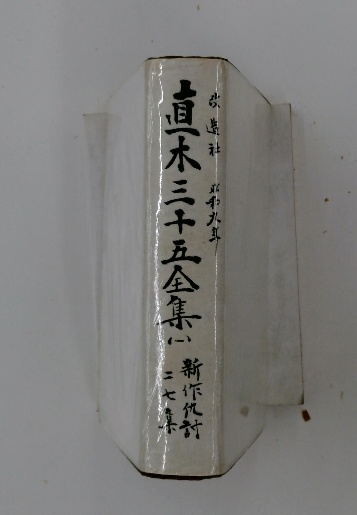 改造社 昭和九年
直木三十五全集(一)
新作仇討
二七集